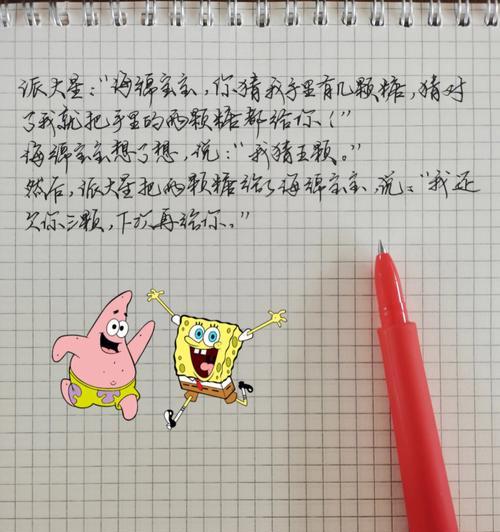 派大星：“海绵宝宝，你猜我手里有几颗糖，猜对
了我就把手里的两颗糖都给你！”
海绵宝宝想了想，说：“我猜五颗。”
然后，派大星把两颗糖给了海绵宝宝，说：“我还
欠你三颗，下次再给你。”